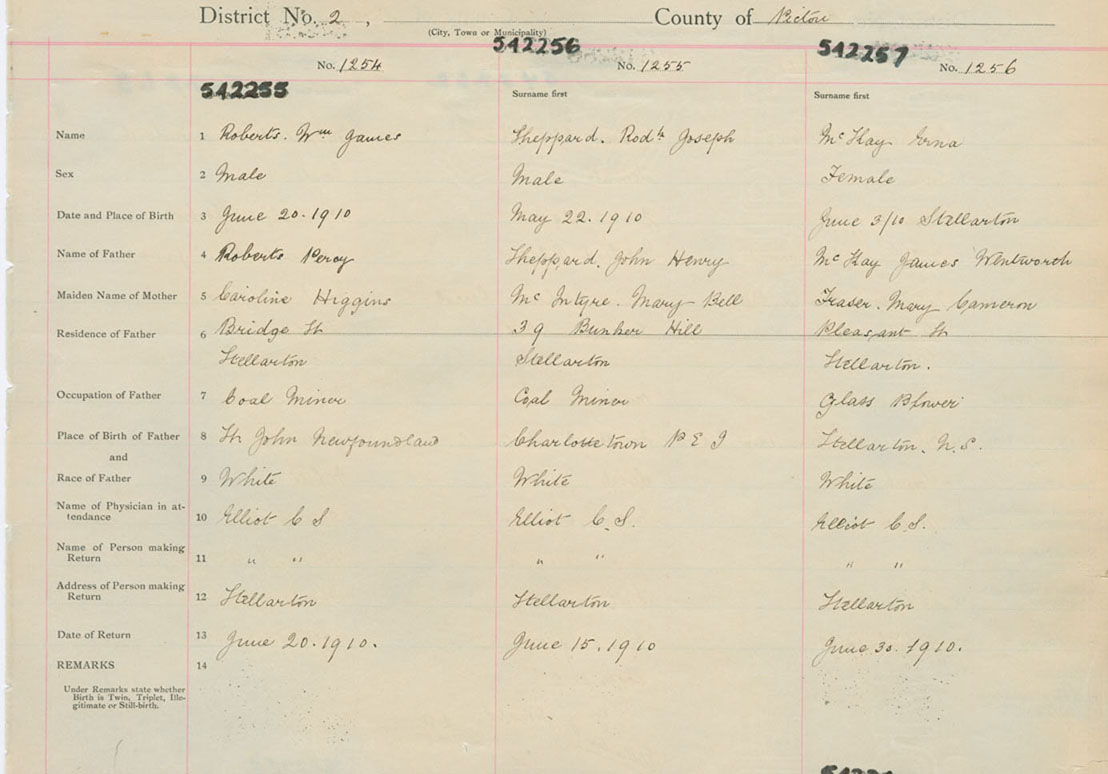 District No. 2, County of Pictou
(City, Town or Municipality)
542256 542257
No. 1254 No. 1255 No. 1256
542255 Surname first Surname first
Name 1 Roberts. Wm James Sheppard. Rodk Joseph McKay Erna
Sex 2 Male Male Female
Date and Place of Birth 3 June 20.1910 May 22.1910 June 3/10 Stellarton
Name of Father 4 Roberts Percy Sheppard. John Henry McKay James Wentworth
Maiden Name of Mother 5 Caroline Higgins McIntyre. Mary Bell Fraser. Mary Cameron
Residence of Father 6 Bridge St 39 Bunker Hill Pleasant St
Stellarton Stellarton Stellarton.
Occupation of Father 7 Coal Miner Coal Miner Glass Blower
Place of Birth of Father 8 St John Newfoundland Charlottetown P E I Stellarton. N.S.
and
Race of Father 9 White White White
Name of Physician in at-
tendance 10 Elliot C S Elliot C.S. Elliot C.S.
Name of Person making
Return 11 " " " " " "
Address of Person making
Return 12 Stellarton Stellarton Stellarton
Date of Return 13 June 20.1910. June 15.1910 June 30.1910.
REMARKS 14
Under Remarks state whether
Birth is Twin, Triplet, Ille-
gitimate or Still-birth.